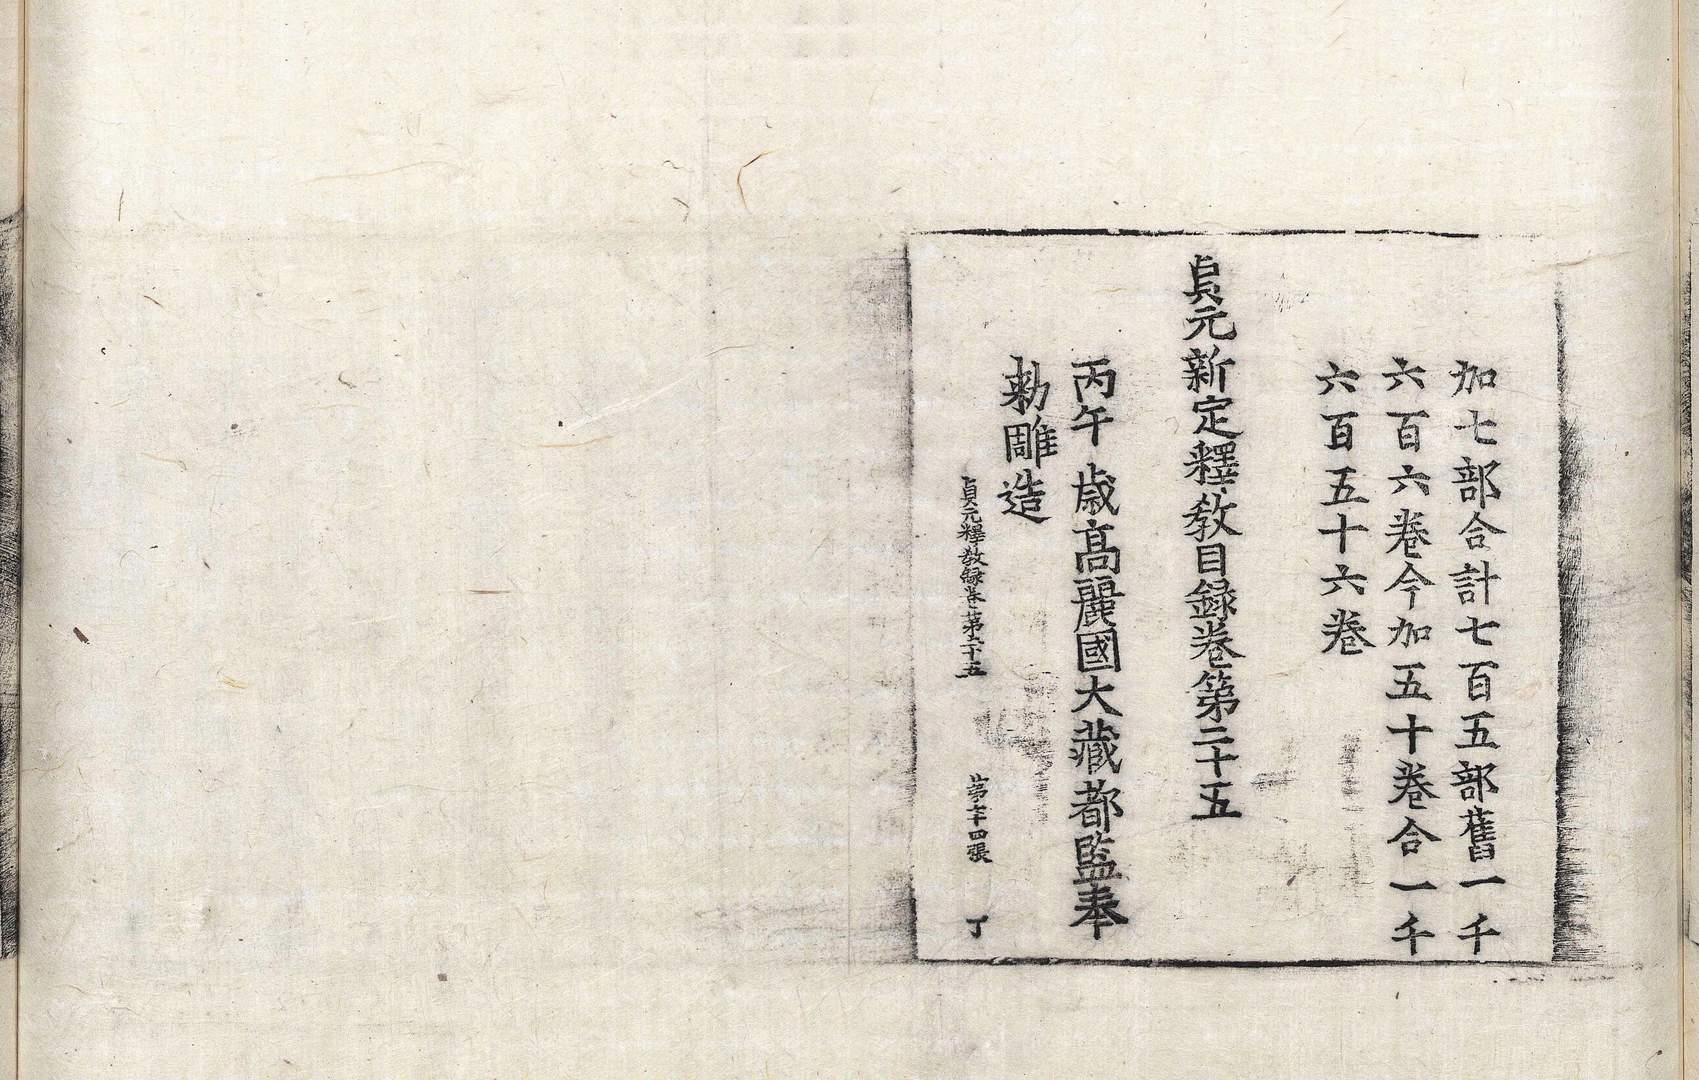 加七部合計七百五部舊一千
六百六卷今加五十卷合一千
六百五十六卷
貞元新定釋敎目録卷第二十五
丙午歲高麗國大藏都監奉
勅雕造
貞元釋敎録卷第二十五 第七十四張 丁